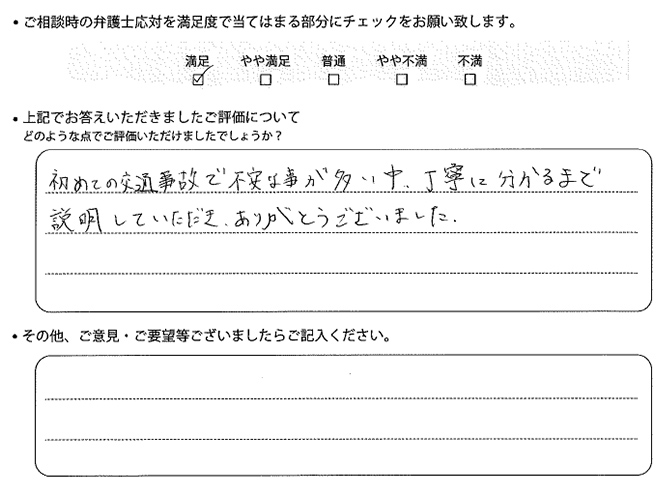 • ご相談時の弁護士応対を満足度で当てはまる部分にチェックをお願い致します。
満足 やや満足 普通 やや不満 不満
☑ ☐ ☐ ☐ ☐
• 上記でお答えいただきましたご評価について
どのような点でご評価いただけましたでしょうか？
初めての交通事故で不安な事が多い中、丁寧に分かるまで
説明していただき、ありがとうございました。
• その他、ご意見・ご要望等ございましたらご記入ください。